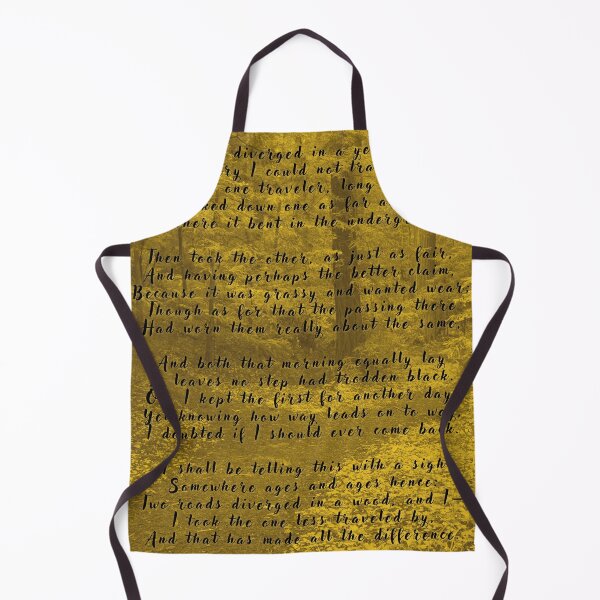 diverged in a
I could not
one traveler, long
down one as far
it bent in the
Then took the other, as just as fair,
And having perhaps the better claim,
Because it was grassy and wanted wear;
Though as for that the passing there
Had worn them really about the same,
And both that morning equally lay
leaves no step had trodden black.
I kept the first for another day
Yet knowing how way leads on to way,
I doubted if I should ever come back.
I shall be telling this with a sigh
Somewhere ages and ages hence:
Two roads diverged in a wood, and I—
I took the one less traveled by,
And that has made all the difference.